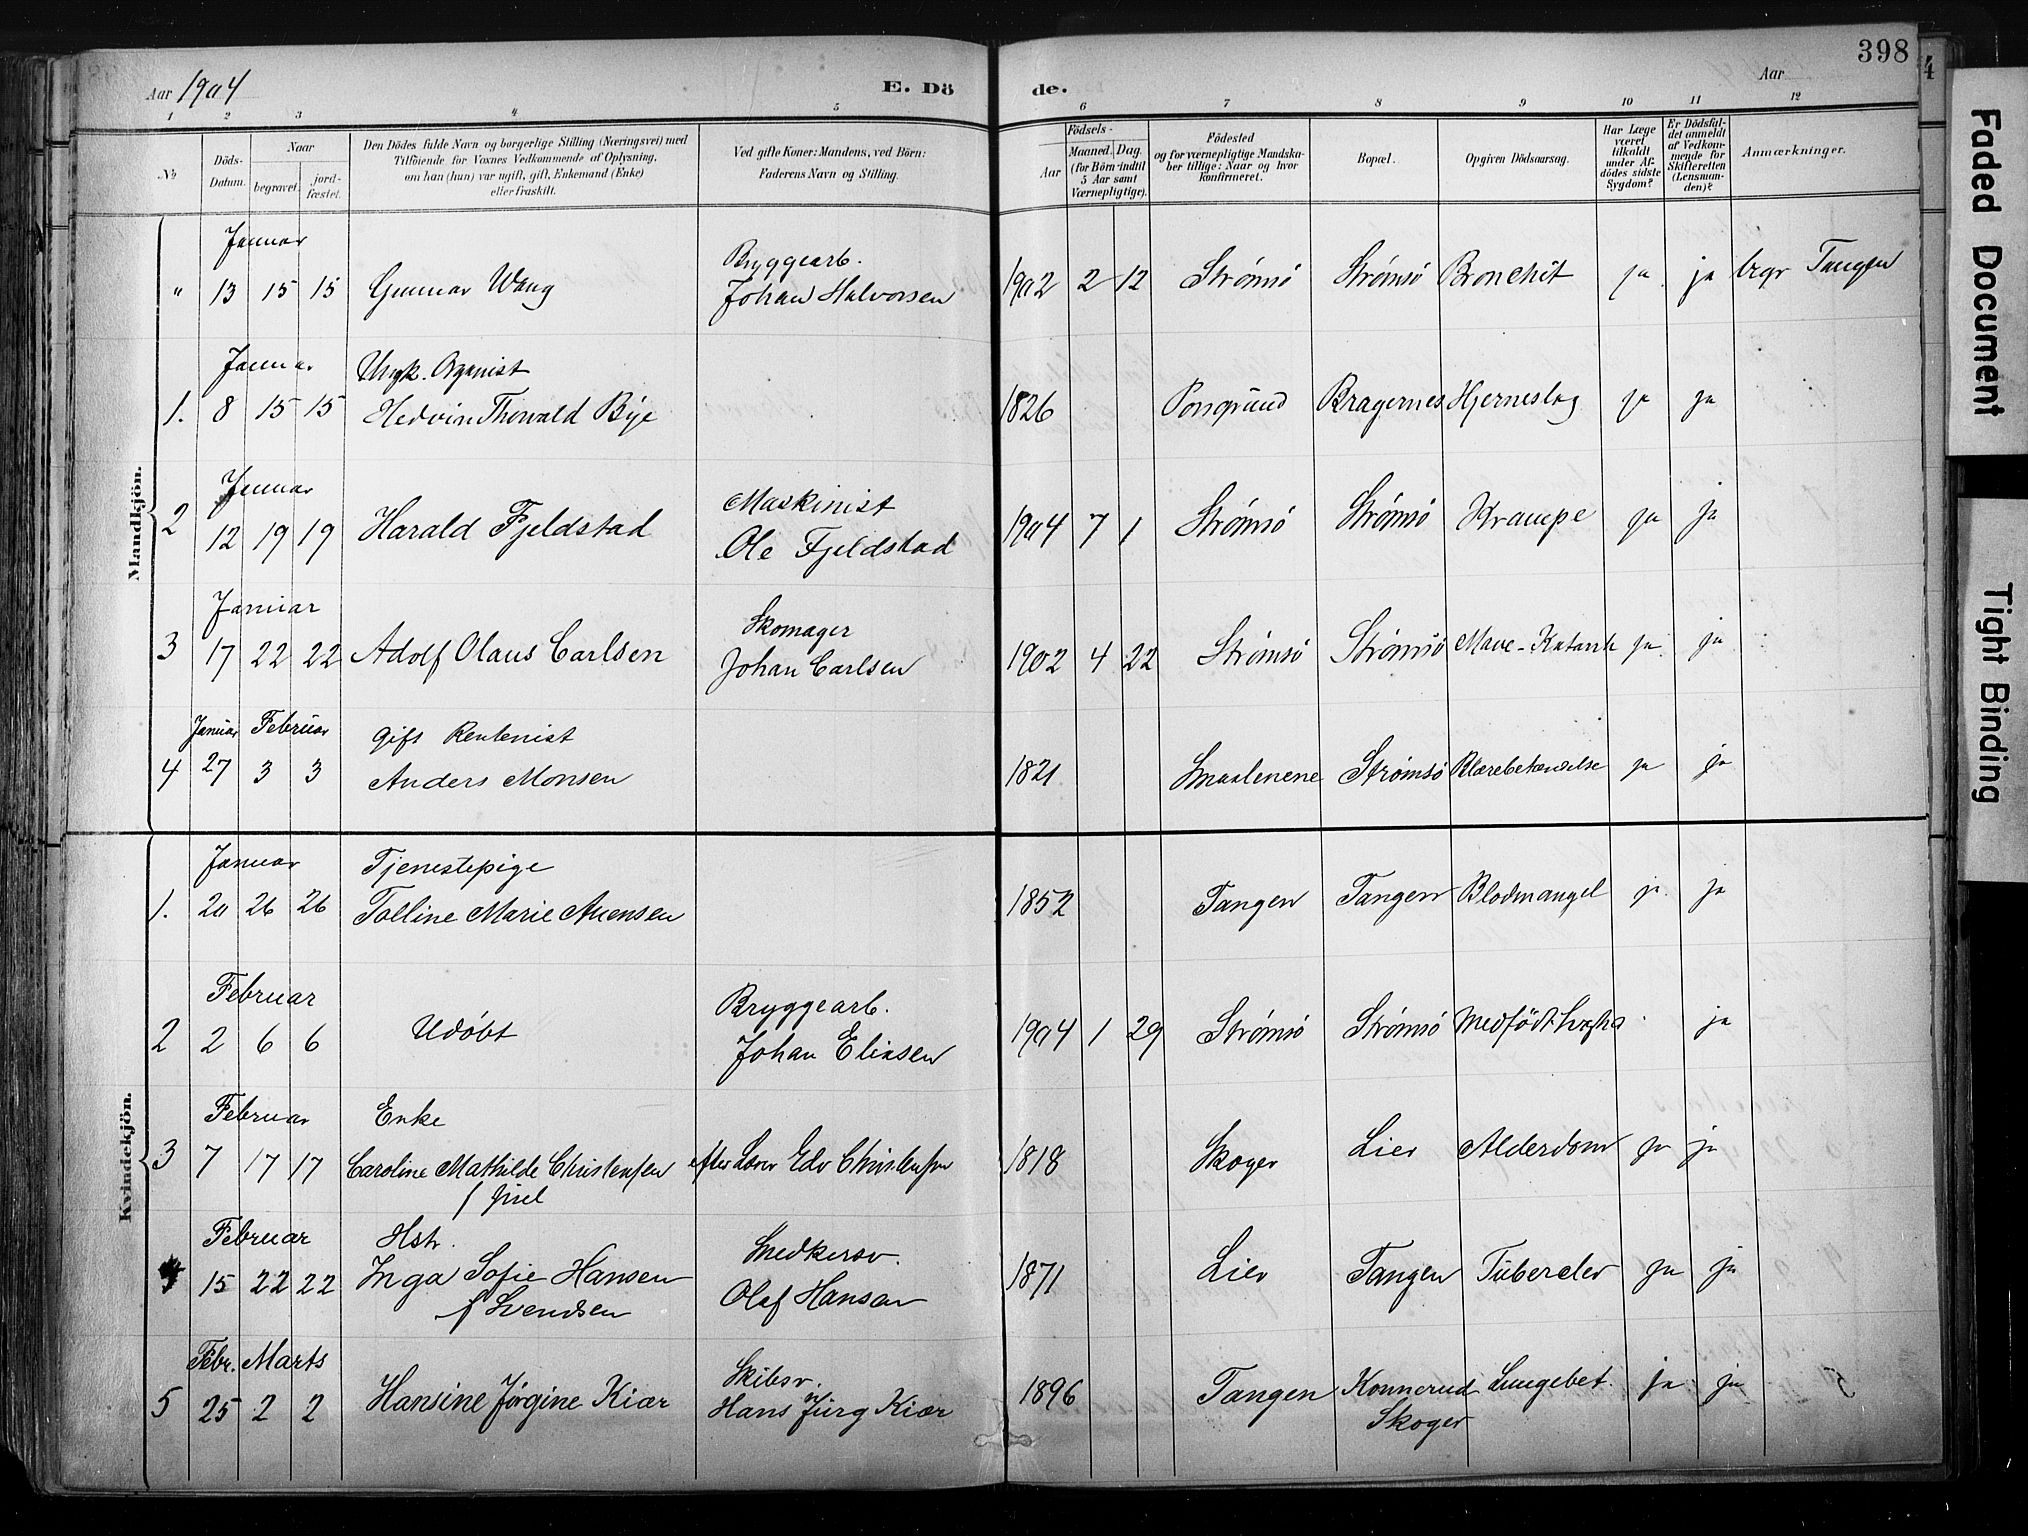 398
Aar 1904
E. Dö
de.
Aar
1 2 3 4 5 6 7 8 9 10 11 12
No
Döds-
Datum.
Naar
begravet.
jord-
fæstet.
Den Dödes fulde Navn og borgerlige Stilling (Næringsvei) med
Tilföiende for Voxnes Vedkommende af Oplysning,
om han (hun) var ugift, gift, Enkemand (Enke)
eller fraskilt.
Ved gifte Koner: Mandens, ved Börn:
Faderens Navn og Stilling.
Födsels-
Aar
Maaned. Dag.
(for Börn indtil
5 Aar samt
Værnepligtige).
Födested
og for værnepligtige Mandska-
ber tillige: Naar og hvor
konfirmeret.
Bopæl.
Opgiven Dödsaarsag.
Har Læge
været
tilkaldt
under Af-
dödes sidste
Sygdom?
Er Dödsfal-
det anmeldt
af Vedkom-
mende for
Skifteretten
(Lensman-
den)?
Anmærkninger.
Mandkjön.
Januar
" 13 15 15 Gunnar Wang
Bryggearb.
Johan Halvorsen
1902 2 12 Strømsö Strømsö Bronchit ja ja begr Tangen
Januar Ungk. Organist
1. 8 15 15 Hedvin Thorvald Bye 1826 Porsgrund Bragernes Hjerneslag ja ja
Januar
2 12 19 19 Harald Fjeldstad
Maskinist
Ole Fjeldstad
1904 7 1 Strømsö Strømsö Krampe ja ja
Januar
3 17 22 22 Adolf Olaus Carlsen
Skomager
Johan Carlsen
1902 4 22 Strømsö Strømsö Mave-Katarrh ja ja
Januar Februar gift Rentenist
4 27 3 3 Anders Monsen 1821 Smaalenene Strømsö Blærebetændelse ja ja
Kvindekjön.
Januar Tjenestepige
1. 20 26 26 Tolline Marie Auensen 1852 Tangen Tangen Blodmangel ja ja
Februar
2 2 6 6 Udöbt
Bryggearb.
Johan Eliasen
1904 1 29 Strømsö Strømsö Medfödt ja
Februar Enke
3 7 17 17 Caroline Mathilde Christensen efter Lærer Edv Christensen 1818 Skoger Lier Alderdom ja ja
f
Februar Hstr.
4 15 22 22 Inga Sofie Hansen
f Svendsen
Snedkersv.
Olaf Hansen
1871 Lier Tangen Tubercler ja ja
Febr. Marts
5 25 2 2 Hansine Jörgine Kiær
Skibsv.
Hans Jürg Kiær
1896 Tangen Konnerud Lungebet. ja ja
Skoger
Faded Document
Tight Binding